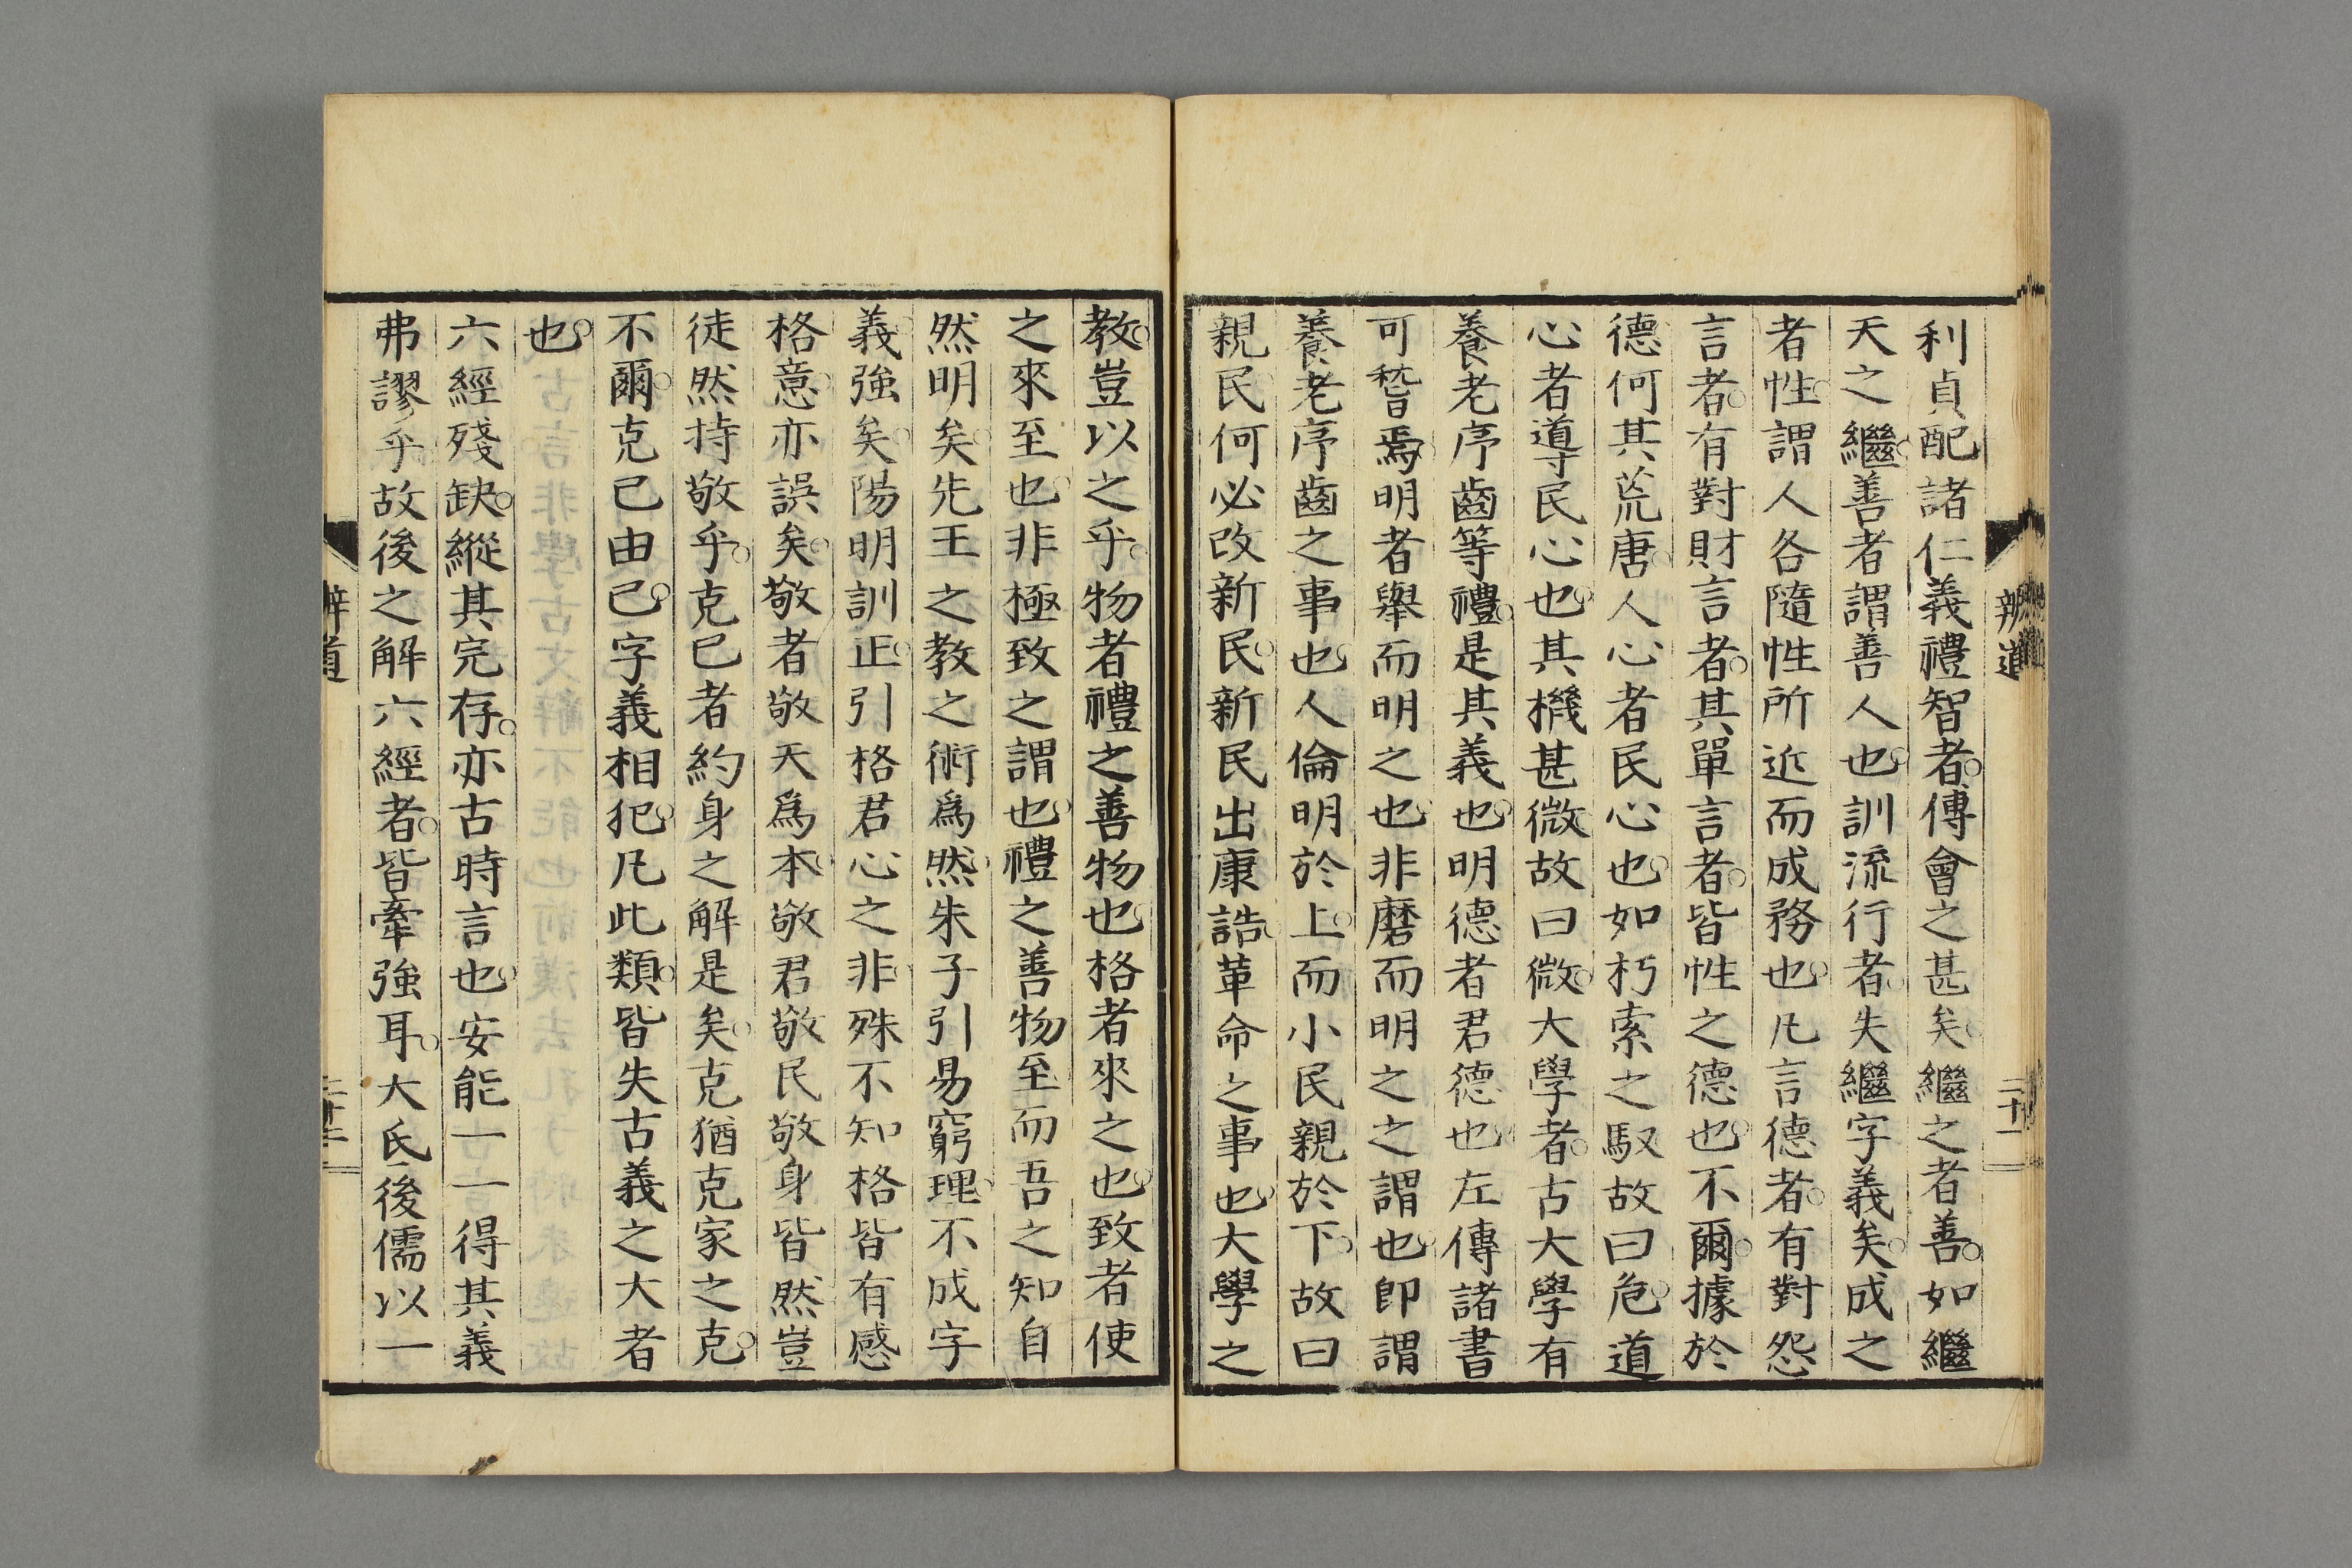 利貞配諸仁義禮智者傅會之甚矣繼之者善如繼
天之繼善者謂善人也訓流行者失繼字義矣成之
者性謂人各隨性所近而成務也凡言德者有對怨
言者有對財言者其單言者皆性之德也不爾據於
德何其荒唐人心者民心也如朽索之馭故曰危道
心者導民心也其機甚微故曰微大學者古大學有
養老序齒等禮是其義也明德者君德也左傳諸書
可稽焉明者舉而明之也非磨而明之之謂也即謂
養老序齒之事也人倫明於上而小民親於下故曰
親民何必改新民新民出康誥革命之事也大學之
辨道
二十一
教豈以之乎物者禮之善物也格者來之也致者使
之來至也非極致之謂也禮之善物至而吾之知自
然明矣先王之教之術爲然朱子引易窮理不成字
義強矣陽明訓正引格君心之非殊不知格皆有感
格意亦誤矣敬者敬天爲本敬君敬民敬身皆然豈
徒然持敬乎克己者約身之解是矣克猶克家之克
不爾克己由己字義相犯凡此類皆失古義之大者
也
六經殘缺縱其完存亦古時言也安能一一得其義
弗謬乎故後之解六經者皆牽強耳大氐後儒以一
辨道